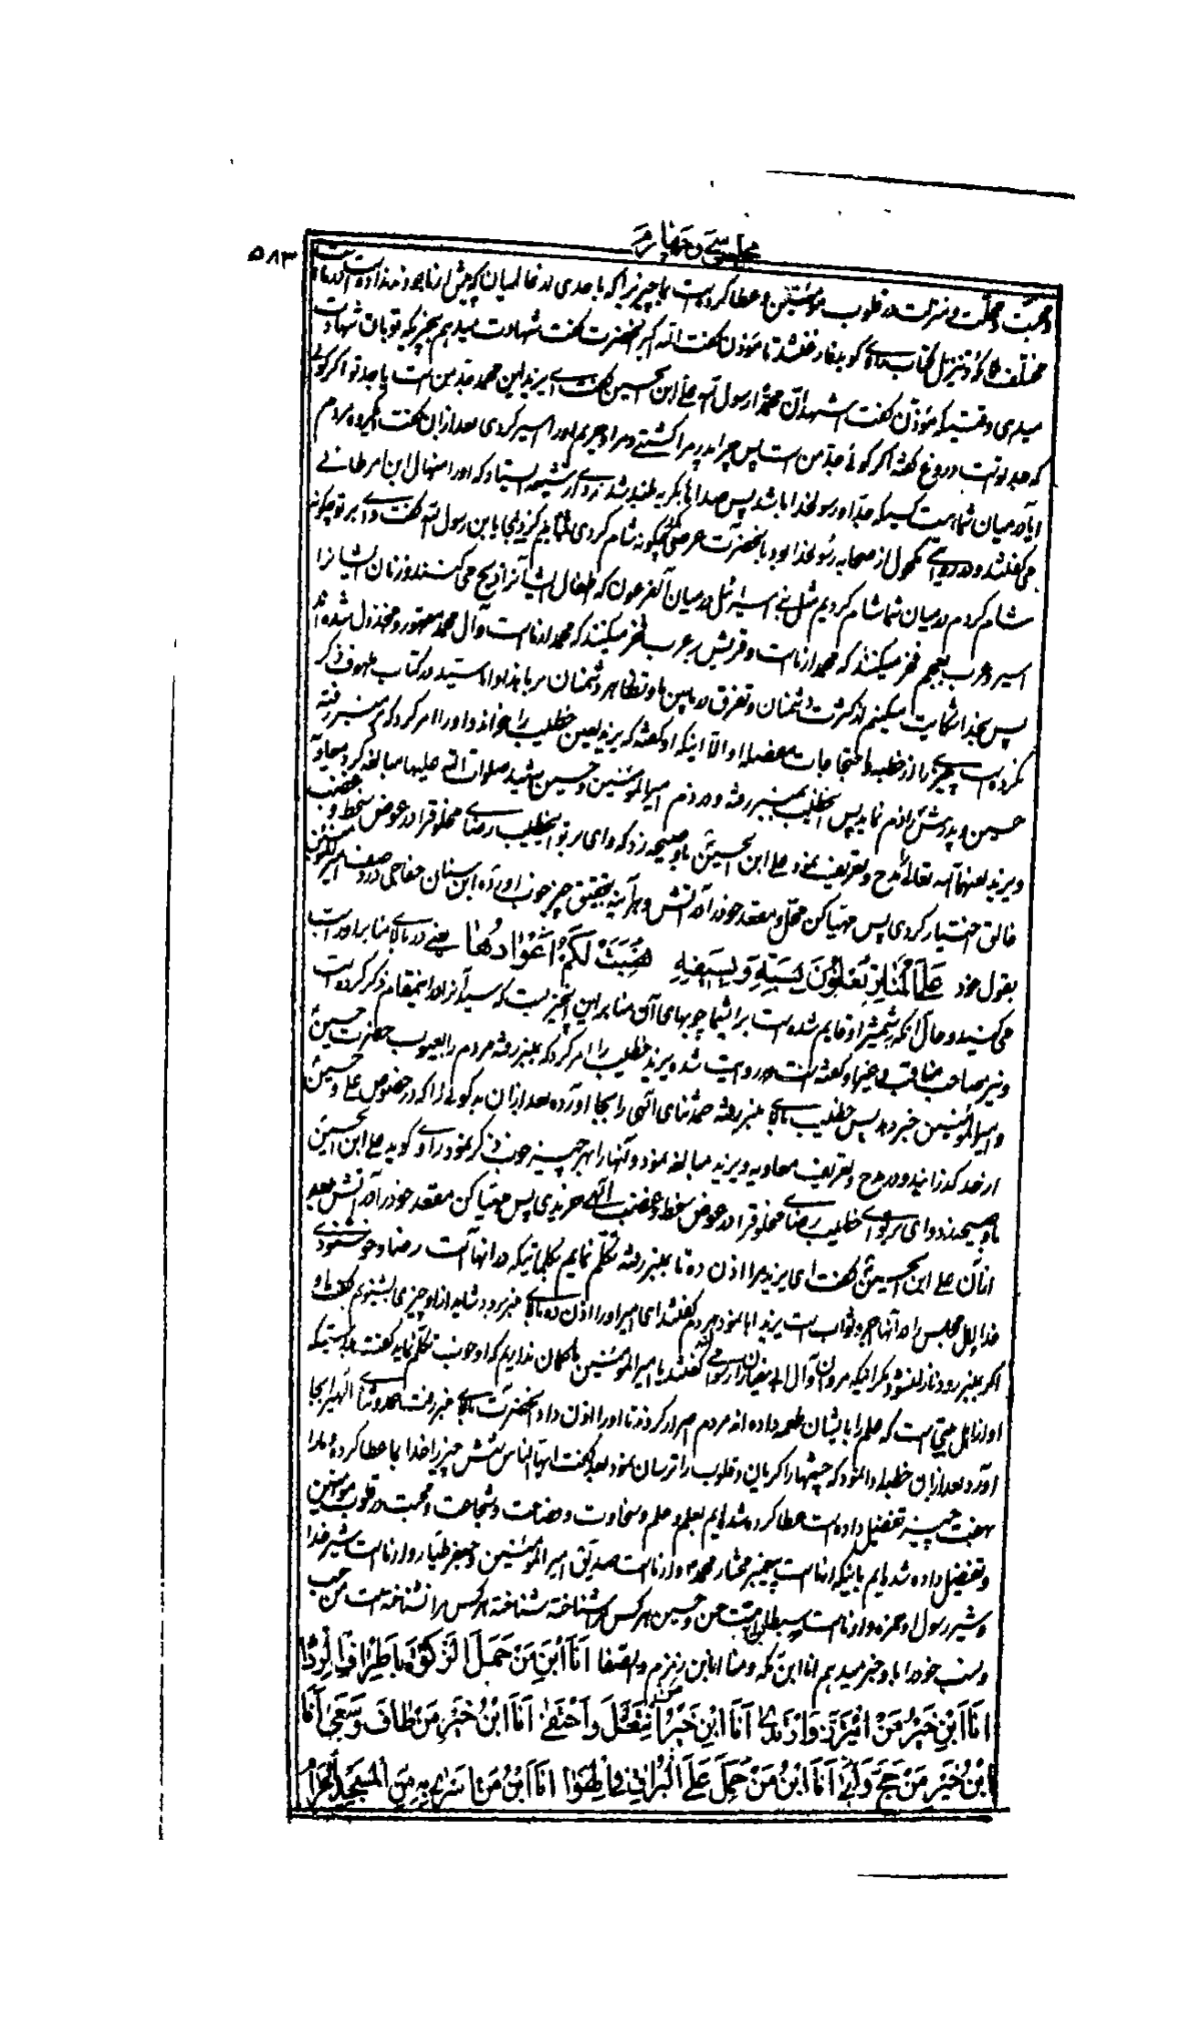 مجلس سی و چهارم
۵۸۳
و محبت و محلّت و منزلت در قلوب مؤمنین و عطا کرده است بما چیزیرا که باحدی در عالمیان پیش از ما
مختلف ملائکه و تنزیل کتاب مؤذن گفت الله اکبر آنحضرت گفت شهادت میدهم بچیزیکه تو بآن شهادت
میدهی وقتیکه مؤذن گفت اشهد انّ محمّدا رسول الله علی ابن الحسین گفت ای یزید این محمد جد من است یا جد تو اگر گوئی
که جد تو است دروغ گفته اگر گوئی جد من است پس چرا پدر مرا کشتی و مرا و حریم او را اسیر کردی بعد از آن گفت ای گروه مردم
آیا در میان شما هست کسیکه جد او رسولخدا باشد پس صداها بگریه بلند شد مردی از شیعه ایستاد که او را منهال ابن
می گفتند و در روایت مکحول از صحابه رسولخدا بود بآنحضرت عرض چگونه شام کردی یا ابن رسول الله گفت وای بر تو چگونه
شام کردم در میان شما شام کردیم مثل بنی اسرائیل در میان آل فرعون که اطفال ایشانرا ذبح می کنند و زنان ایشانرا
اسیر و عرب بعجم فخر میکند که محمد از ما است و قریش بعرب فخر میکند که محمد از ما است و آل محمد مقهور و مخذول شده اند
پس بخدا شکایت میکنیم از کثرت دشمنان و تفرق در کتاب ملهوف ذکر
کرده است چیزیرا از خطبه و احتجاجات مفصله او الا اینکه او گفته که یزید لعین خطیب را خواند و او را امر کرد که بمنبر رفته
حسین و پدرش را ذم نماید پس خطیب بمنبر رفته و در ذم امیرالمؤمنین و حسین شهید صلوات الله علیهما مبالغه کرد و معاویه
و یزید لعنهما الله تعالی را مدح و تعریف نمود علی ابن الحسین باو صیحه زد که وای بر تو ای خطیب رضای مخلوق را در عوض سخط و غضب
خالق اختیار کردی پس مهیا کن محل و مقعد خود را در آتش و هرآینه بتحقیق چه خوب آورده ابن سنان خفاجی در وصف امیرالمؤمنین
بقول خود عَلَی الْمَنَابِرِ تُعْلِنُونَ بِسَبِّهِ وَبِسَیْفِهِ نُصِبَتْ لَکُمْ اَعْوَادُهَا یعنی در بالای منابر او را سب
می کنید و حال آنکه بشمشیر او قایم شده است برای شما چوبهای آن منابر این آنچیزیست که سید آنرا در اینمقام ذکر کرده است
و نیز صاحب مناقب و غیر او گفته است روایت شده یزید خطیب را امر کرد که بمنبر رفته مردم را بعیوب حضرت حسین
و امیرالمؤمنین خبر دهد پس خطیب بالای منبر رفته حمد ثنای الهی را بجا آورده بعد از آن بدگوئی را که در خصوص علی و حسین
از حد گذرانید و در مدح و تعریف معاویه و یزید مبالغه نمود و آنها را بهر چیز خوب ذکر نمود راوی گوید علی ابن الحسین
باو صیحه زد وای بر تو ای خطیب رضای مخلوق را در عوض سخط و غضب الهی خریدی پس مهیا کن مقعد خود را در آتش بعد
از آن علی ابن الحسین گفت ای یزید مرا اذن ده تا بمنبر رفته تکلم نمایم بکلماتیکه در آنها است رضا و خوشنودی
خدا و اهل مجلس را در آنها اجر و ثواب است یزید ابا نمود مردم گفتند ای امیر او را اذن ده بالای منبر برود شاید از او چیزی بشنویم گفت
اگر بمنبر رود نازل نشود مگر اینکه مرا و آل ابی سفیان را رسوا گفتند یا امیرالمؤمنین ما گمان نداریم که او خوب تکلم نماید گفت بدرستیکه
او از اهل بیتی است که علم را بایشان طعمه داده اند مردم اصرار کردند تا او را اذن داد آنحضرت بالای منبر رفت حمد و ثنای الهی را بجا
آورد بعد از آن خطبه ادا نمود که چشمها را گریان و قلوب را ترسان نمود بعد گفت ایها الناس شش چیز را خدا بما عطا کرده و ما را
بهفت چیز تفضیل داده است عطا کرده شده ایم بعلم و حلم و سخاوت و فصاحت و شجاعت و محبت در قلوب مؤمنین
و تفضیل داده شده ایم باینکه از ما است پیغمبر مختار محمد و از ما است صدیق امیرالمؤمنین و جعفر طیار و از ما است شیر خدا
و شیر رسول او حمزه و از ما است سبطین حسن و حسین هر کس مرا شناخته شناخته هر کس مرا نشناخته است من حسب
و نسب خود را باو خبر میدهم انا ابن مکه و منا انا ابن زمزم و الصفا اَنَا ابْنُ مَنْ حَمَلَ الزَّکوٰةَ بِاَطْرَافِ الرِّدَا
اَنَا ابْنُ خَیْرِ مَنْ ائْتَزَرَ وَارْتَدیٰ اَنَا ابْنُ خَیْرِ مَنِ انْتَعَلَ وَاحْتَفیٰ اَنَا ابْنُ خَیْرِ مَنْ طَافَ وَسَعیٰ اَنَا
ابْنُ خَیْرِ مَنْ حَجَّ وَلَبّیٰ اَنَا ابْنُ مَنْ حُمِلَ عَلَی الْبُرَاقِ فِی الْهَوَا اَنَا ابْنُ مَنْ اُسْرِیَ بِهِ مِنَ الْمَسْجِدِ الْحَرَامِ